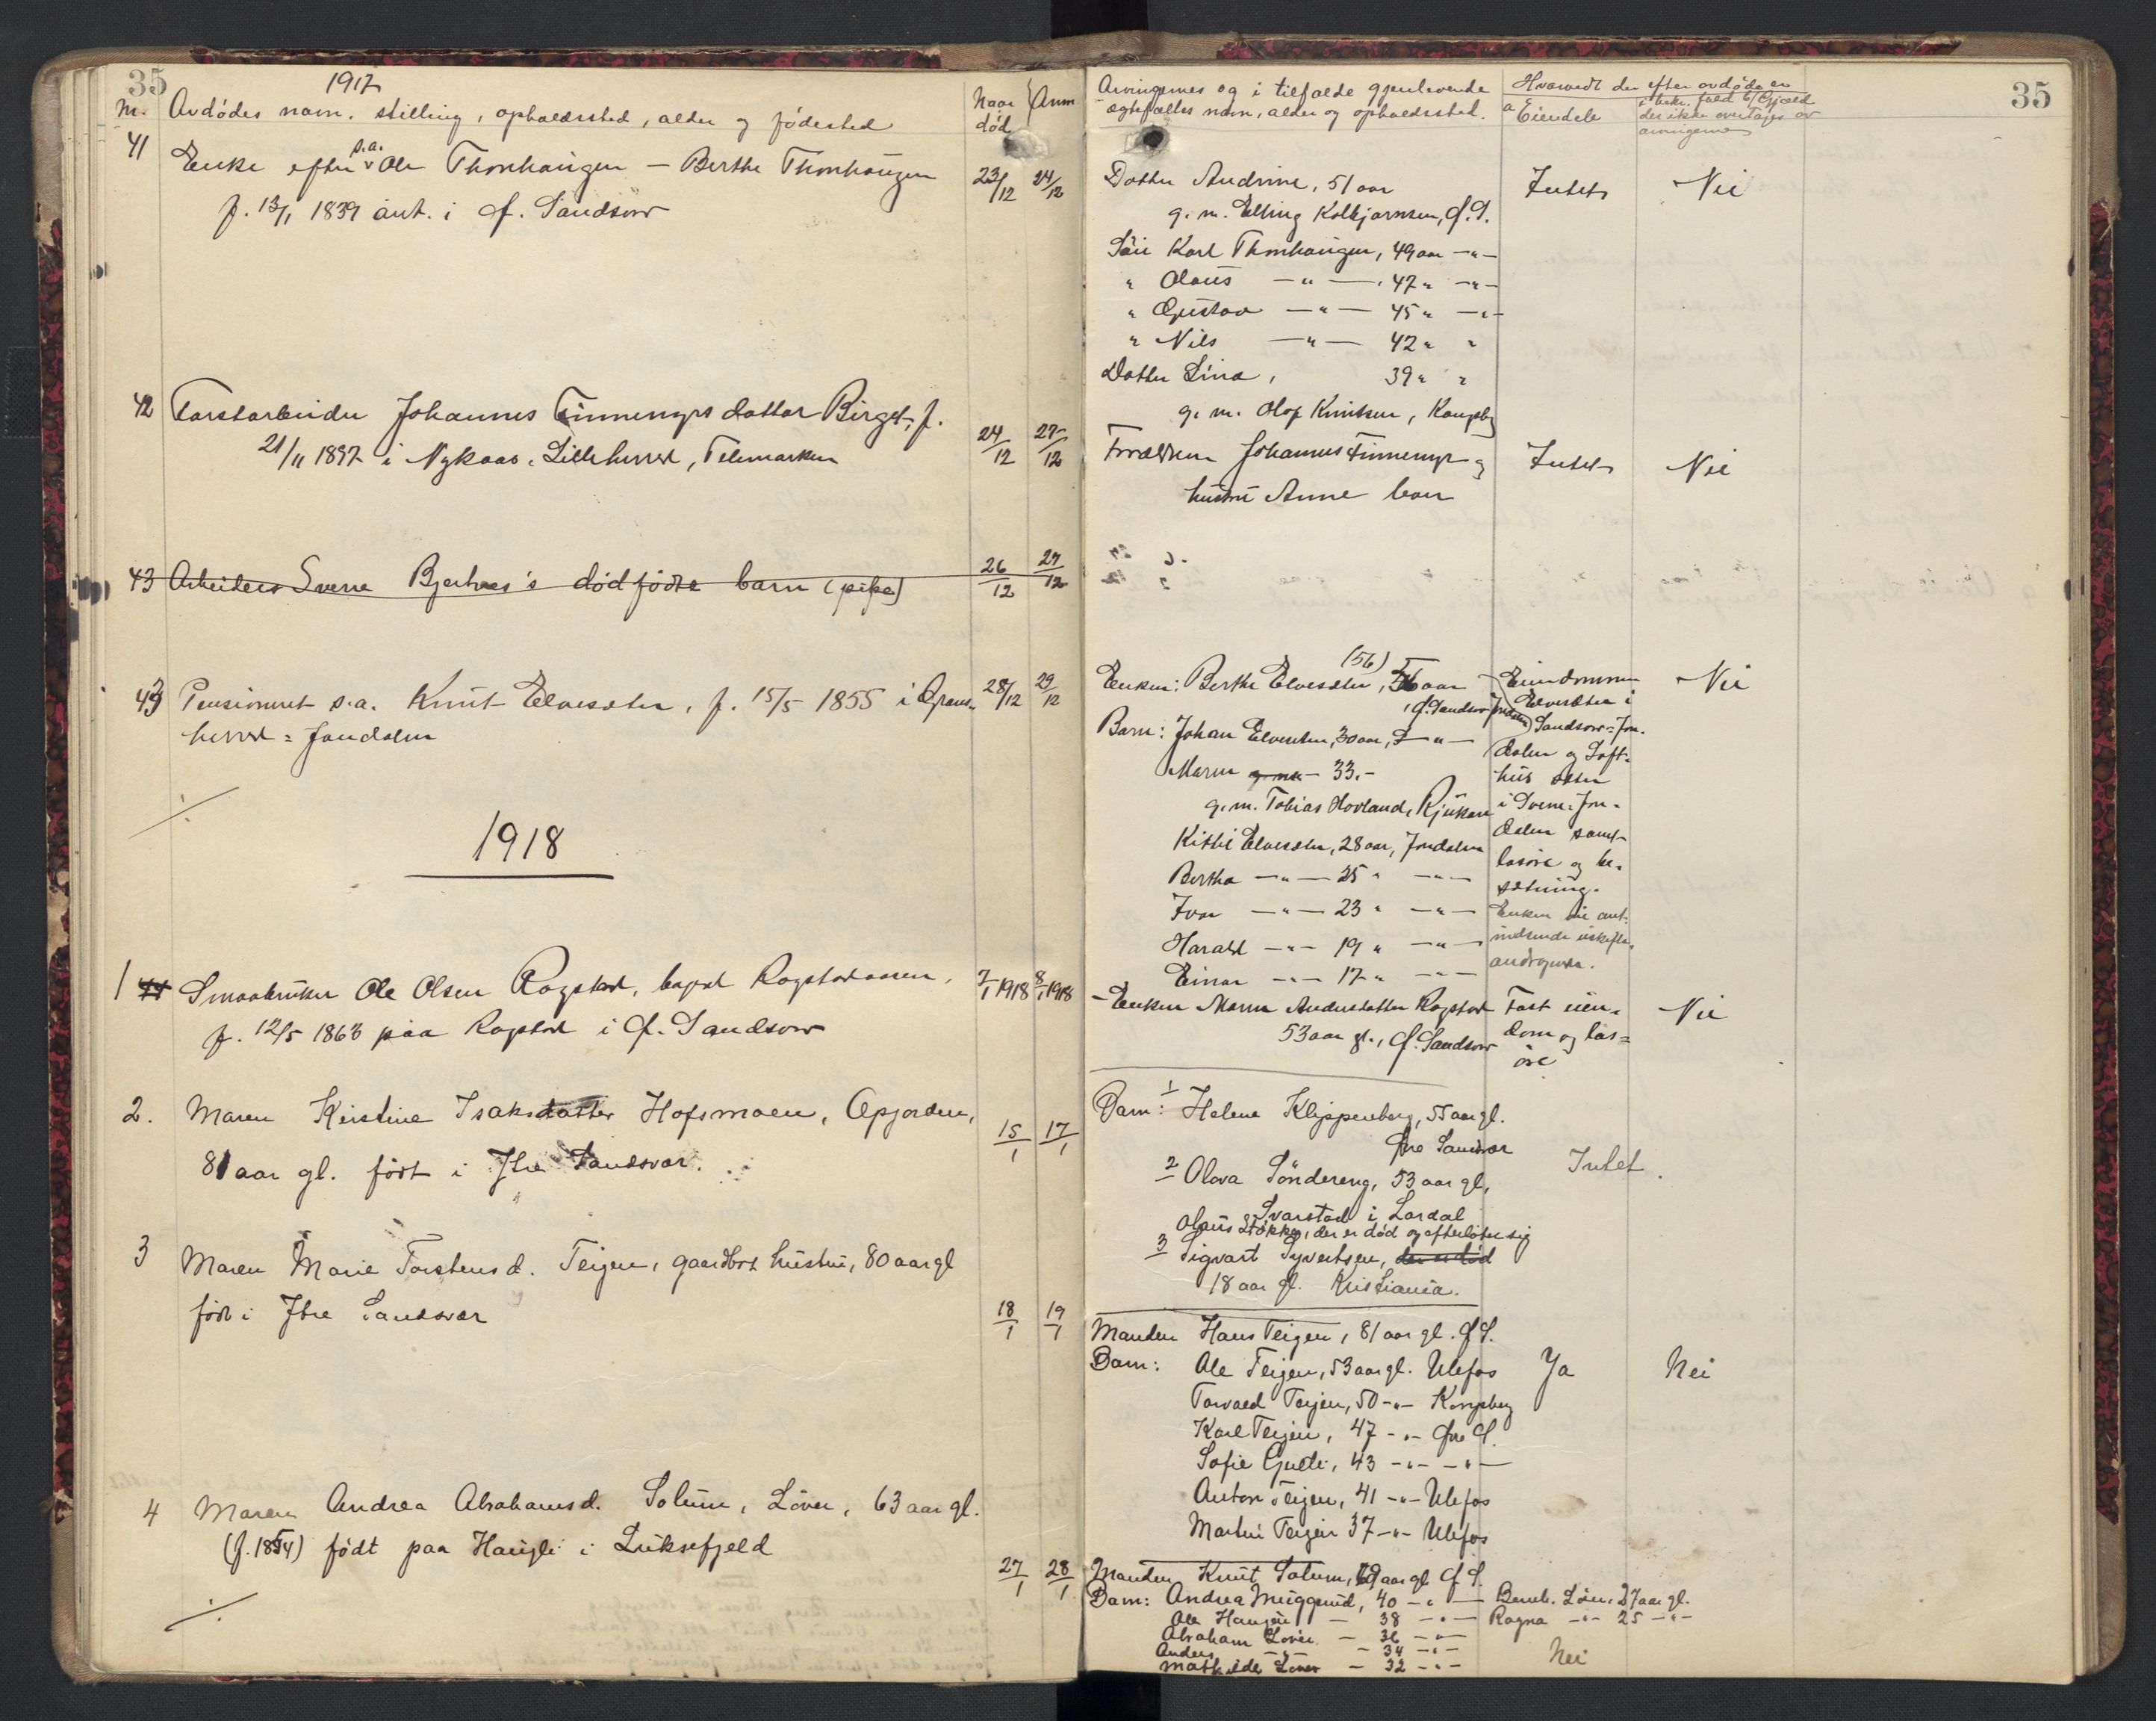 35
1917
Nr. Avdødes navn, stilling, opholdssted, alder og fødested
Naar død
Anm
41 Enke efter p.a. Ole Thonhaugen — Berthe Thonhaugen
f. 13/1 1839 ant. i Ø. Sandsvær
23/12 24/12
42 Johannes Tinnemyrs datter Birgit, f.
21/11 1897 i Nykaas, Lilleherred, Telemarken
24/12 27/12
43 Arbeider Sverre Bjertnes's dødfødte barn (pike)
26/12 27/12
43 Pensioneret s.a. Knut Elvesæter, f. 15/5 1855 i Grans-
herred = Jondalen
28/12 29/12
1918
1 44 Smaabruker Ole Olsen Rogstad, Rogstadaasen,
f. 12/5 1863 paa Rogstad i Ø. Sandsvær
7/1 1918 8/1 1918
2. Maren Kirstine Isaksdatter Hofsmoen, Øpjorden,
81 aar gl. født i Ytre Sandsvær.
15/1 17/1
3 Maren Marie Torstensd. Teigen, gaardbr. hustru, 80 aar gl
født i Ytre Sandsvær
18/1 19/1
4 Maren Andrea Abrahamsd. Solum, Løver, 63 aar gl.
(f. 1854) født paa Haugli i Luksefjeld
27/1 28/1
35
Arvingernes og i tilfælde gjenlevende
egtefælles navn, alder og opholdssted.
Hvorvidt der efter avdøde er
a Eiendele
i bekr. fald b/ Gjæld
der ikke overtages av
arvingerne
Datter Andrine, 51 aar
g. m. Elling Kolbjørnsen, Ø. S.
Intet Nei
Søn Karl Thonhaugen, 49 aar —"—
" Olaus —"— 47 " —"—
" Gustav —"— 45 " —"—
" Nils —"— 42 " "
Datter Lina, 39 " "
g. m. Olaf Knutsen, Kongsbg
Forældrene Johannes Tinnemyr og
hustru Anne
Intet Nei
Enken: Berthe Elvesæter, (56) 56 aar
Ø. Sandsvær Jondalen
Barn: Johan Elvesæter, 30 aar, —"—
Maren g. m. — 33 —
g. m. Tobias Hovland, Rjukan
Kitti Elvesæter, 28 aar, Jondalen
Bertha —"— 25 " —"—
Ivar —"— 23 " —"—
Harald —"— 19 " —"—
Einar —"— 17 " —"—
Eiendommen
Elvesæter i
Sandsvær = Jon-
dalen og Loft-
hus sæter
i Svene = Jon-
dalen samt
løsøre og be-
sætning.
Enken vil ant.
indsende uskifte-
andragende.
Nei
— Enken Maren Andersdatter Rogstad
53 aar gl., Ø. Sandsvær
Fast eien-
dom og løs-
øre
Nei
Barn: 1 Helene Kleppenberg, 55 aar gl.
Øvre Sandsvær
2 Olava Søndereng, 53 aar gl,
Svarstad i Lardal
Olaus Stokke, der er død og efterlater sig
3 Sigvart Syvertsen, der er død
18 aar gl. Kristiania.
Intet.
Manden Hans Teigen, 81 aar gl. Ø S.
Barn: Ole Teigen, 53 aar gl. Ulefos
Torvald Teigen, 50 —"— Kongsberg
Karl Teigen, 47 —"— Øvre S.
Sofie Gudli, 43 —"— —"—
Anton Teigen, 41 —"— Ulefos
Martin Teigen 37 —"— Ulefos
Ja Nei
Manden Knut Solum, 69 aar gl Ø S.
Barn: Andrea Muggerud, 40 —"—
Ole Haugen — 38 —"—
Abraham Løver — 36 —"—
Anders — 34 —"—
Mathilde Løver — 32 —"—
Løver 27 aar gl.
Ragna —"— 25 —"—
Nei